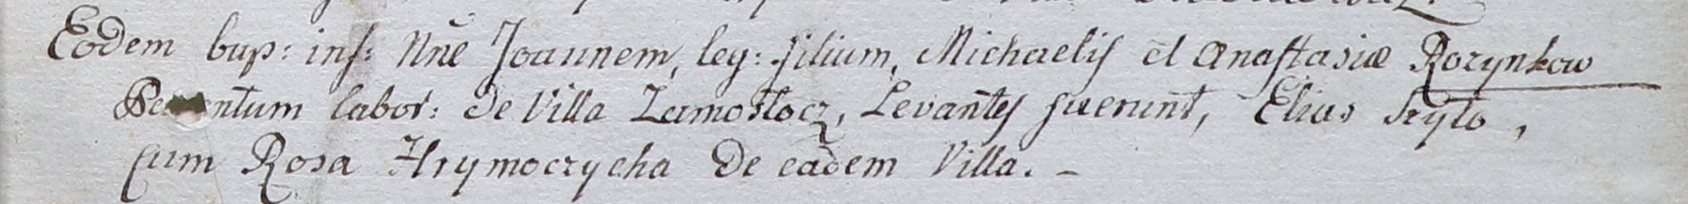 Eodem bap: inf: Nne Joannem, leg: filium, Michaelis et Anastasiæ Rozynkow
labor: de Villa Zamostocz, Levantes fuerunt, Elias Szyło,
cum Rosa Hrymoczycha de eadem Villa. -